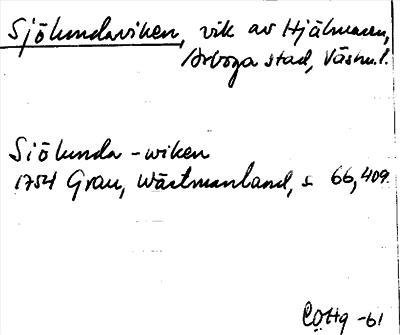 Sjölundaviken, vik av Hjälmaren,
Arboga stad, Västm.l.
Siölunda-wiken
1754 Grau, Wästmanland, s 66, 409.
COHg -61